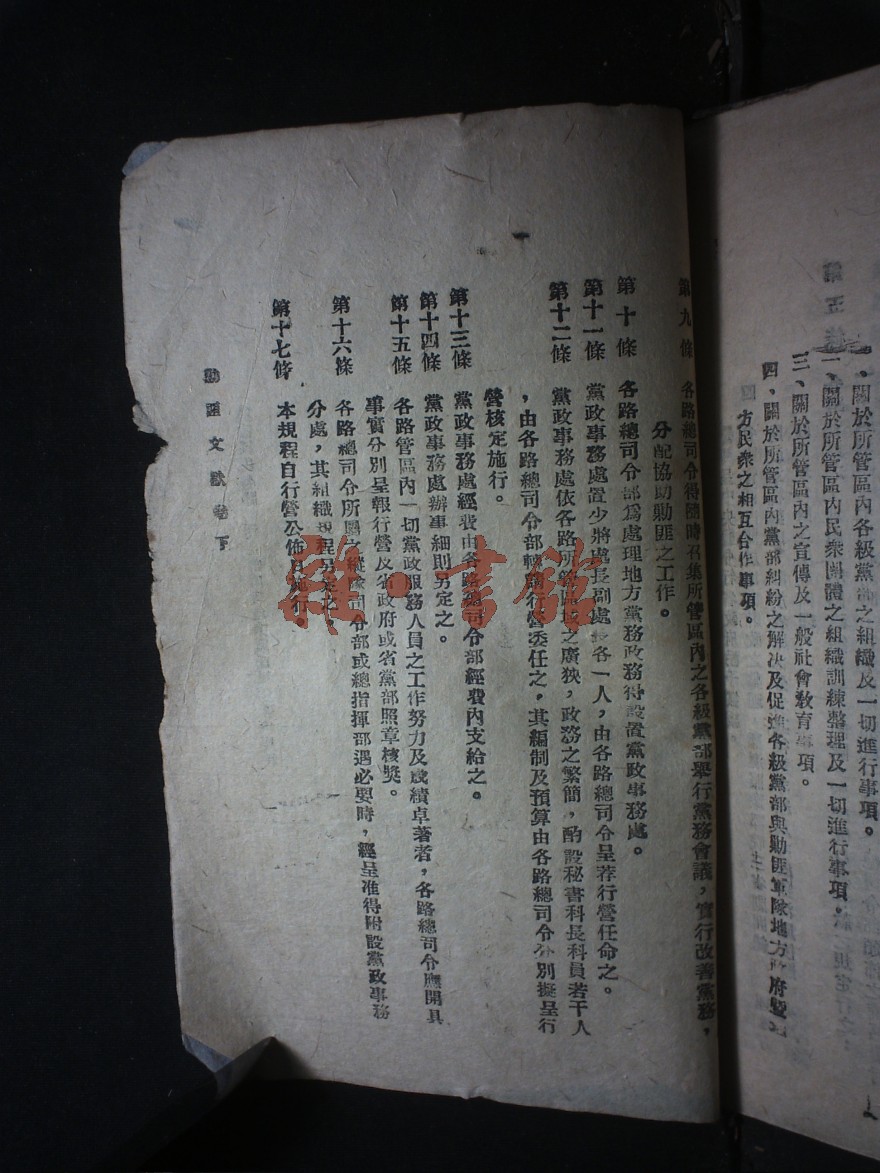 、關於所管區內各級黨部之組織及一切進行事項。
第五條
一、關於所管區內民衆團體之組織訓練整理及一切進行事項。
三、關於所管區內之宣傳及一般社會教育事項。
四、關於所管區內黨部糾紛之解決及促進各級黨部與勦匪軍隊地方政府暨地
方民衆之相互合作事項。
第九條 各路總司令得隨時召集所管區內之各級黨部舉行黨務會議，實行改善黨務，
分配協助勦匪之工作。
第十條 各路總司令部爲處理地方黨務政務得設置黨政事務處。
第十一條 黨政事務處置少將處長副處長各一人，由各路總司令呈荐行營任命之。
第十二條 黨政事務處依各路所管區域之廣狹，政務之繁簡，酌設秘書科長科員若干人
，由各路總司令部轉請行營委任之，其編制及預算由各路總司令分別擬呈行
營核定施行。
第十三條 黨政事務處經費由各路總司令部經費內支給之。
第十四條 黨政事務處辦事細則另定之。
第十五條 各路管區內一切黨政服務人員之工作努力及成績卓著者，各路總司令應開具
事實分別呈報行營及省政府或省黨部照章核獎。
第十六條 各路總司令所屬之縱隊司令部或總指揮部遇必要時，經呈准得附設黨政事務
分處，其組織規程另定之。
第十七條 本規程自行營公佈日施行。
勦匪文獻卷下
一
雜·書館